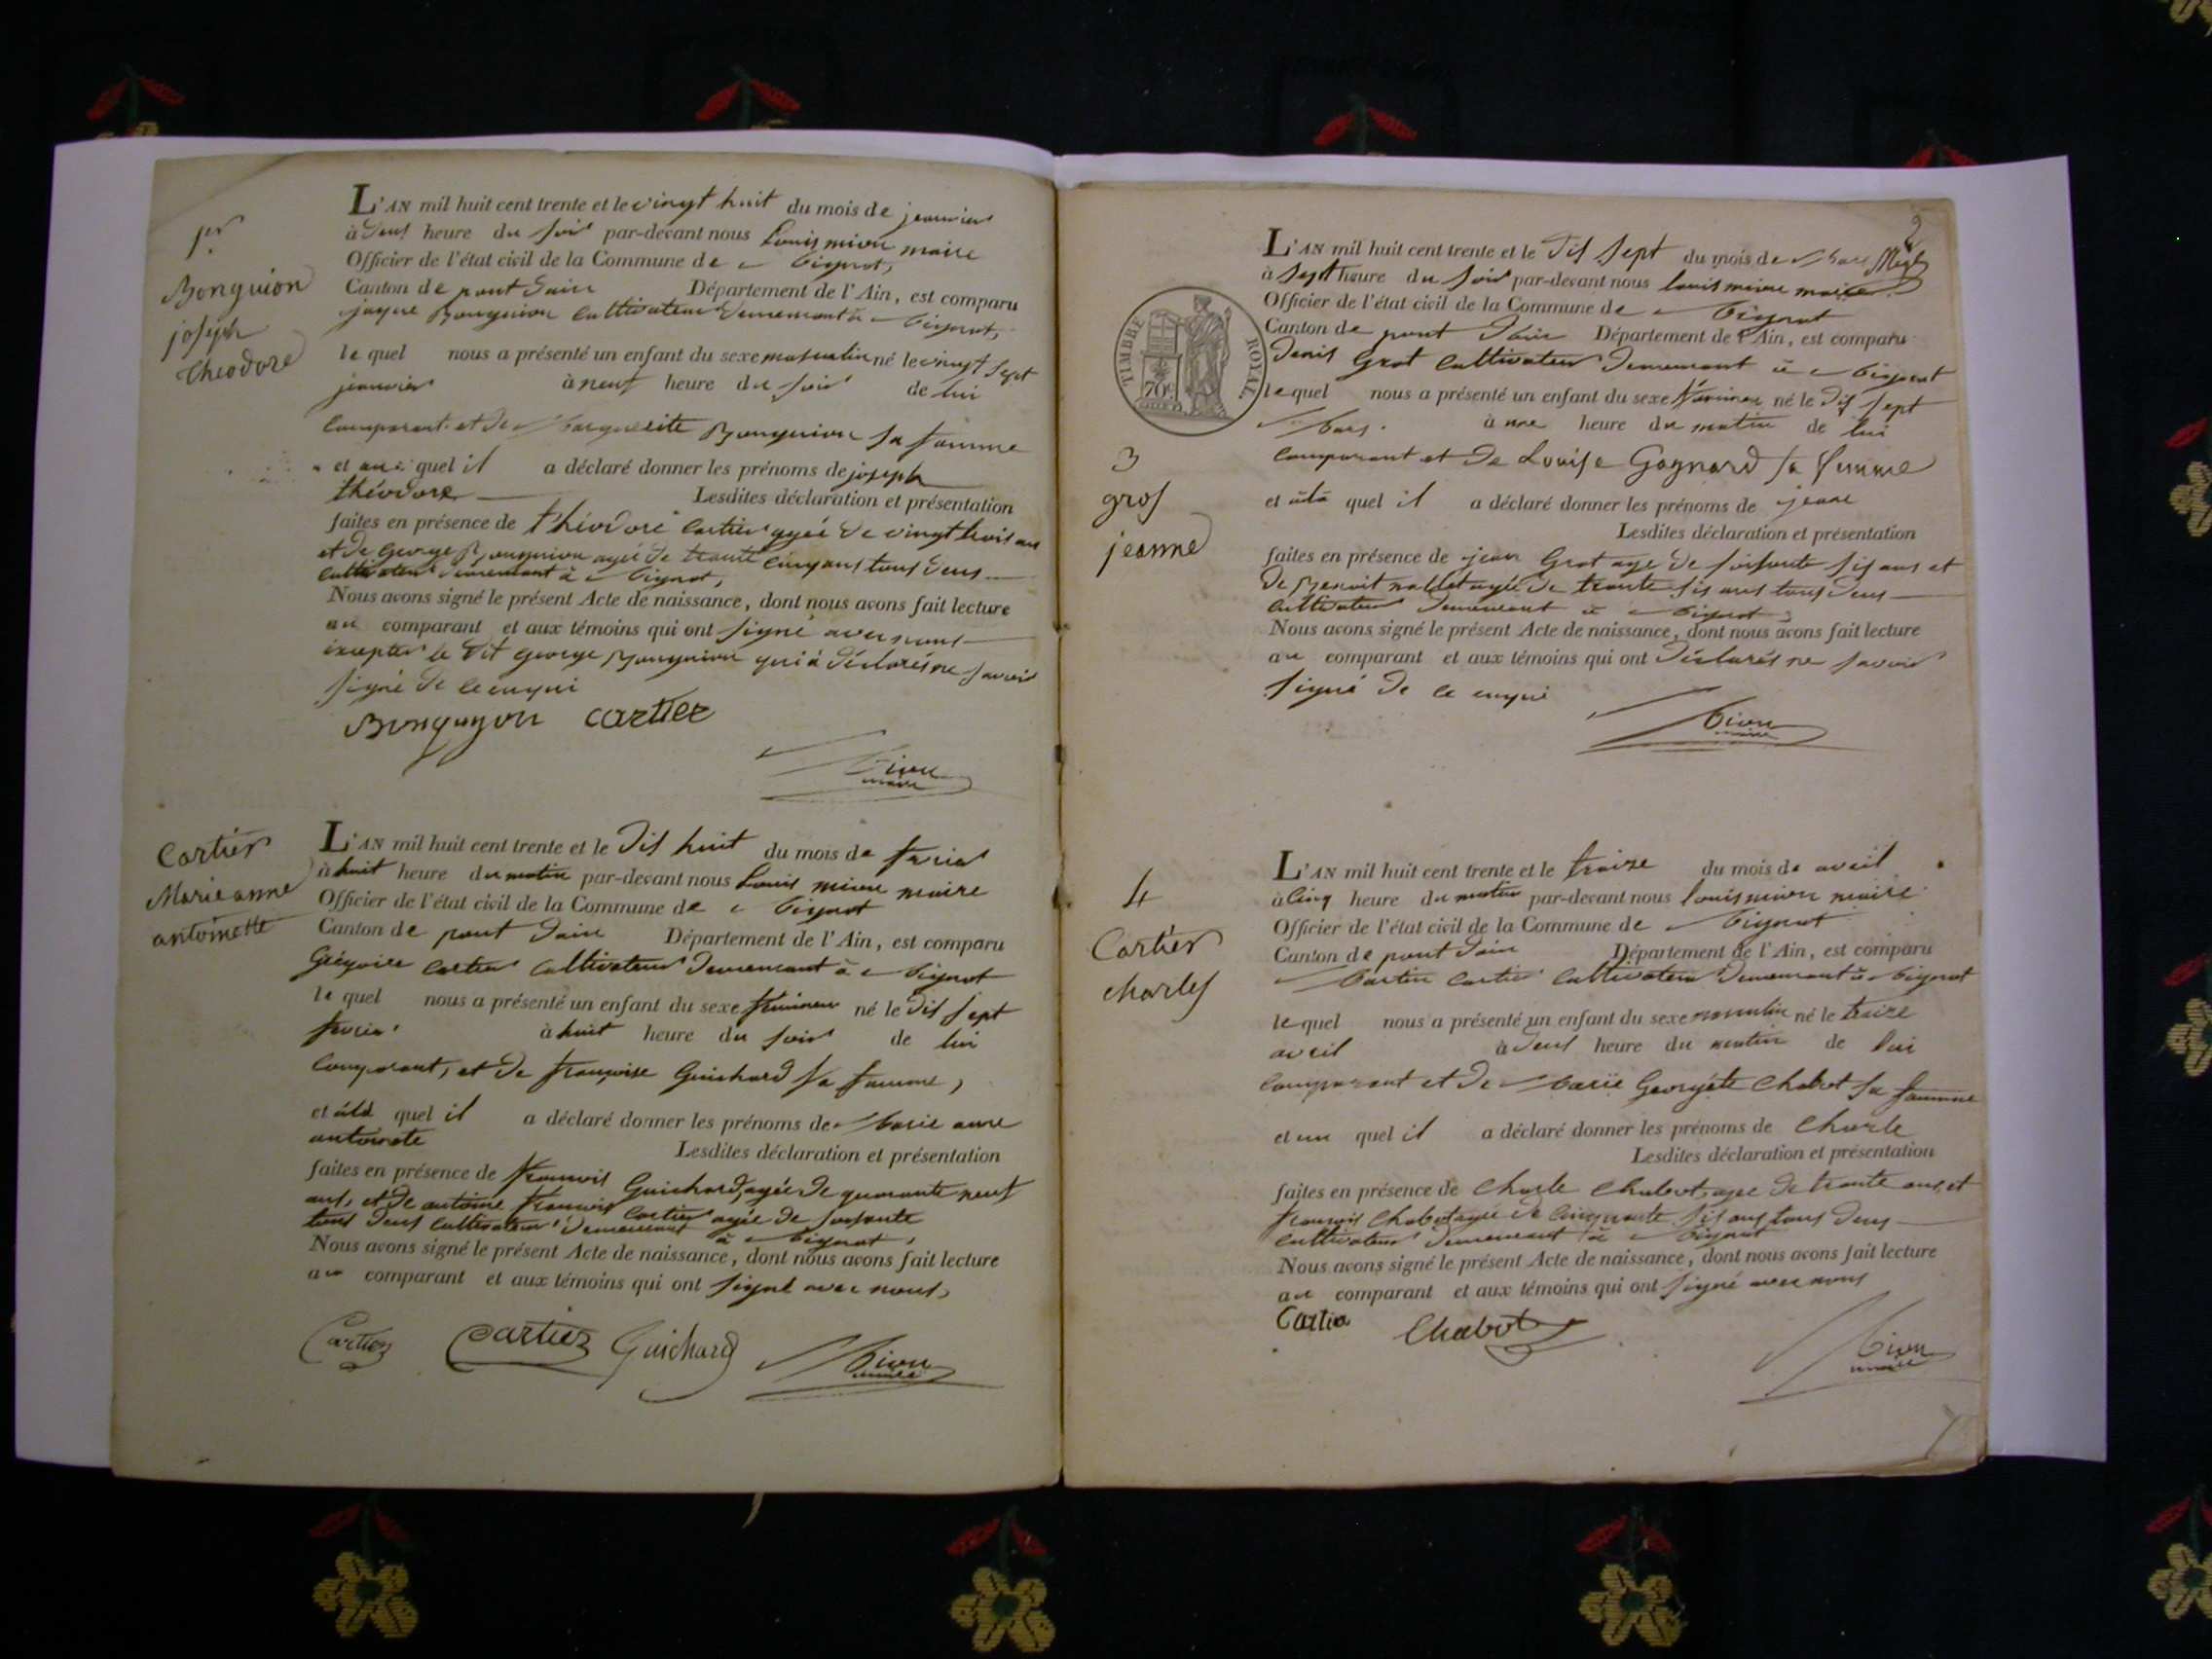 1er
Bonguion
joseph
theodore
L'AN mil huit cent trente et le vingt huit du mois de jeanvier
à deus heure du soir par-devant nous Louis mion maire
Officier de l'état civil de la Commune de
Canton de pont dain Département de l'Ain, est comparu
jaque Bonguion cultivateur demeurant à
le quel nous a présenté un enfant du sexe masculin né le vingt sept
jeanvier à neuf heure du soir de lui
comparant et de Marguerite Bonguion sa famme
et au quel il a déclaré donner les prénoms de joseph
théodore Lesdites déclaration et présentation
faites en présence de théodore Cartier agée de vingt trois ans
et de george Bonguion agée de trante cinq ans tous deus
cultivateur demeurant à
Nous avons signé le présent Acte de naissance, dont nous avons fait lecture
au comparant et aux témoins qui ont signé avec nous
excepter le dit george Bonguion qui a déclarés ne savoir
signé de ce enqui
Bonguyon cartier
Mion
maire
Cartier
Marie anne
antoinette
L'AN mil huit cent trente et le dis huit du mois de
à huit heure du matin par-devant nous Louis mion maire
Officier de l'état civil de la Commune de
Canton de pont dain Département de l'Ain, est comparu
Grégoire Cartier cultivateur demeurant à
le quel nous a présenté un enfant du sexe né le dis sept
à huit heure du soir de lui
comparant, et de françoise Guichard sa famme,
et àla quel il a déclaré donner les prénoms de Marie anne
antoinete Lesdites déclaration et présentation
faites en présence de françois Guichard, agée de quarante neuf
ans, et de antoine françois Cartier agée de soisante
tous deus cultivateur demeurant à
Nous avons signé le présent Acte de naissance, dont nous avons fait lecture
au comparant et aux témoins qui ont signé avec nous,
Cartier Cartier Guichard Mion
maire
2
TIMBRE ROYAL
70c
3
gros
jeanne
L'AN mil huit cent trente et le dis sept du mois de Mars
à sept heure du soir par-devant nous louis mion maire
Officier de l'état civil de la Commune de
Canton de pont dain Département de l'Ain, est comparu
denis Grot cultivateur demeurant à
le quel nous a présenté un enfant du sexe né le dis sept
Mars à une heure du matin de lui
comparant et de Louise Gagnard sa femme
et àla quel il a déclaré donner les prénoms de jeane
Lesdites déclaration et présentation
faites en présence de jean Grot age de soisante sis ans et
de Benoit agée de trante sis ans tous deus
cultivateur demeurant à
Nous avons signé le présent Acte de naissance, dont nous avons fait lecture
au comparant et aux témoins qui ont déclarés ne savoir
signé de ce enqui
Mion
maire
4
Cartier
charles
L'AN mil huit cent trente et le traize du mois de avril
à cinq heure du matin par-devant nous louis mion maire
Officier de l'état civil de la Commune de
Canton de pont dain Département de l'Ain, est comparu
Martin Cartier cultivateur demeurant à
le quel nous a présenté un enfant du sexe né le traize
avril à deus heure du matin de lui
comparant et de Marie Georgete Chabot sa famme
et au quel il a déclaré donner les prénoms de Charle
Lesdites déclaration et présentation
faites en présence de Charle Chabot, agee de trante ans, et
françois Chabot agée de cinquante sis ans tous deus
cultivateur demeurant à
Nous avons signé le présent Acte de naissance, dont nous avons fait lecture
au comparant et aux témoins qui ont signé avec nous
Cartier Chabot Mion
maire